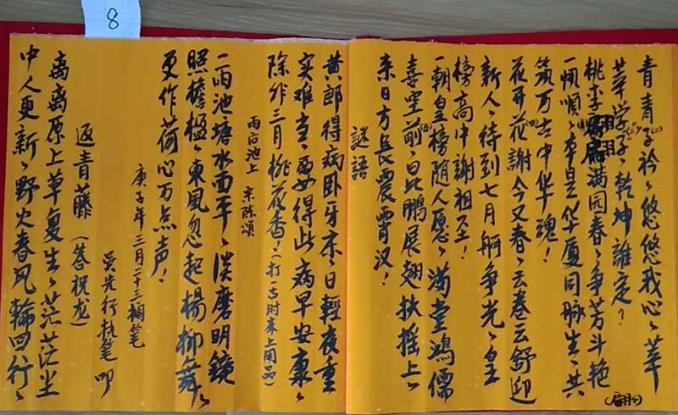 8
青青子衿、悠悠我心、莘
莘学子、乾坤誰定？
桃李满园春、争芳斗艳
一帆順、本是华夏同脉生、共
筑万古中华魂！
花开花謝今又春、云卷云舒迎
新人、待到七月舸争光、皇
榜高中謝祖圣！
一朝皇榜随人愿、满堂鴻儒
喜空前、昆鹏展翅扶摇上、
来日方长震霄汉！
謎語
黄郎得病卧牙床、日輕夜重
实难当、要得此病早安康、
除非三月桃花香！（打一古时床上用品）
雨后池上 宋 陈頌
一雨池塘水面平、淡磨明鏡
照檐楹、東風忽起楊柳舞、
更作荷心万点声！
庚子年三月二十三擱笔
吴先行执笔 叩
返青藤（答祝龙）
离离原上草复生、茫茫尘
中人更新、野火春风輪回行、